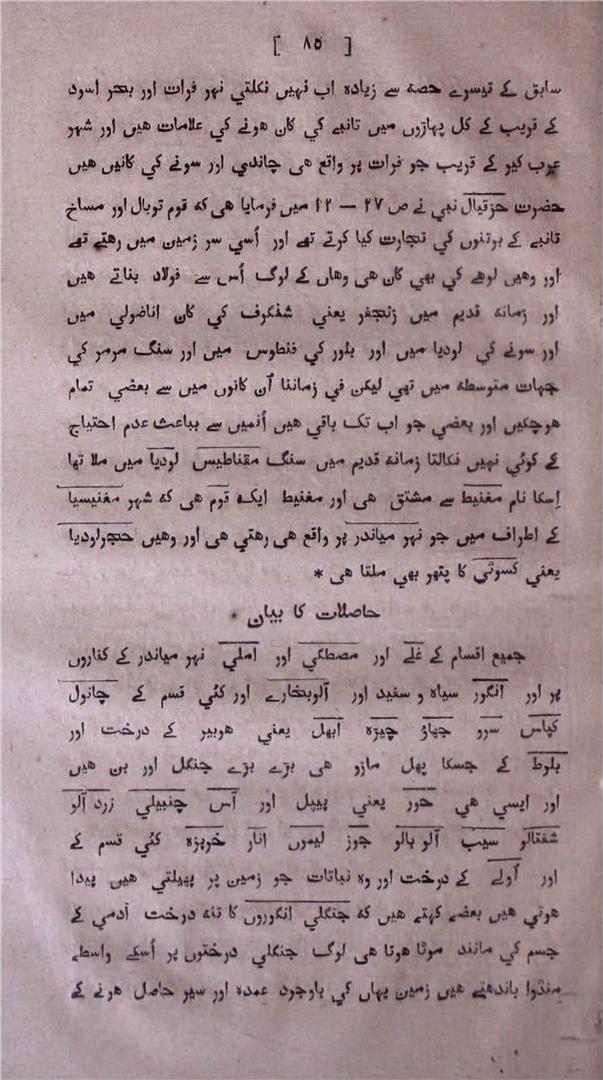 [ ٨٥ ]
سابق کے تیسرے حصہ سے زیادہ اب نہیں نکلتی نہر فرات اور بحر اسود
کے قریب کے کل پہاڑوں میں تانبے کی کان ہونے کی علامات ہیں اور شہر
عرب کیر کے قریب جو فرات پر واقع ہی چاندی اور سونے کی کانیں ہیں
حضرت حزقیال نبی نے ص ٢٧ — ١٢ میں فرمایا ہی کہ قوم توبال اور مساخ
تانبے کے برتنوں کی تجارت کیا کرتے تھے اور اُسی سر زمین میں رہتے تھے
اور وہیں لوہے کی بھی کان ہی وہاں کے لوگ اُس سے فولاد بناتے ہیں
اور زمانہ قدیم میں زنجفر یعنی شنگرف کی کان اناضولی میں
اور سونے کی لودیا میں اور بلور کی فنطوس میں اور سنگ مرمر کی
جہات متوسطہ میں تھی لیکن فی زماننا اُن کانوں میں سے بعضی تمام
ہوچکیں اور بعضی جو اب تک باقی ہیں اُنمیں سے بباعث عدم احتیاج
کے کوئی نہیں نکالتا زمانہ قدیم میں سنگ مقناطیس لودیا میں ملا تھا
اِسکا نام مغنیط سے مشتق ہی اور مغنیط ایک قوم ہی کہ شہر مغنیسیا
کے اطراف میں جو نہر میاندر پر واقع ہی رہتی ہی اور وہیں حجرلودیا
یعنی کسوٹی کا پتھر بھی ملتا ہی *
حاصلات کا بیان
جمیع اقسام کے غلے اور مصطگی اور املی نہر میاندر کے کناروں
پر اور انگور سیاہ و سفید اور آلوبخارے اور کئی قسم کے چانول
کپاس سرو جھاؤ چیڑہ ابھل یعنی ہوبیر کے درخت اور
بلوط کے جسکا پھل مازو ہی بڑے بڑے جنگل اور بن ہیں
اور ایسی ہی حور یعنی پیپل اور آس چنبیلی زرد آلو
شفتالو سیب آلو بالو جوز لیموں انار خربزہ کئی قسم کے
اور اُولے کے درخت اور وہ نباتات جو زمین پر پھیلتی ہیں پیدا
ہوتی ہیں بعضے کہتے ہیں کہ جنگلی انگوروں کا تنہ درخت آدمی کے
جسم کی مانند موٹا ہوتا ہی لوگ جنگلی درختوں پر اُسکے واسطے
منڈوا باندھتے ہیں زمین یہاں کی باوجود عمدہ اور سیر حاصل ہونے کے